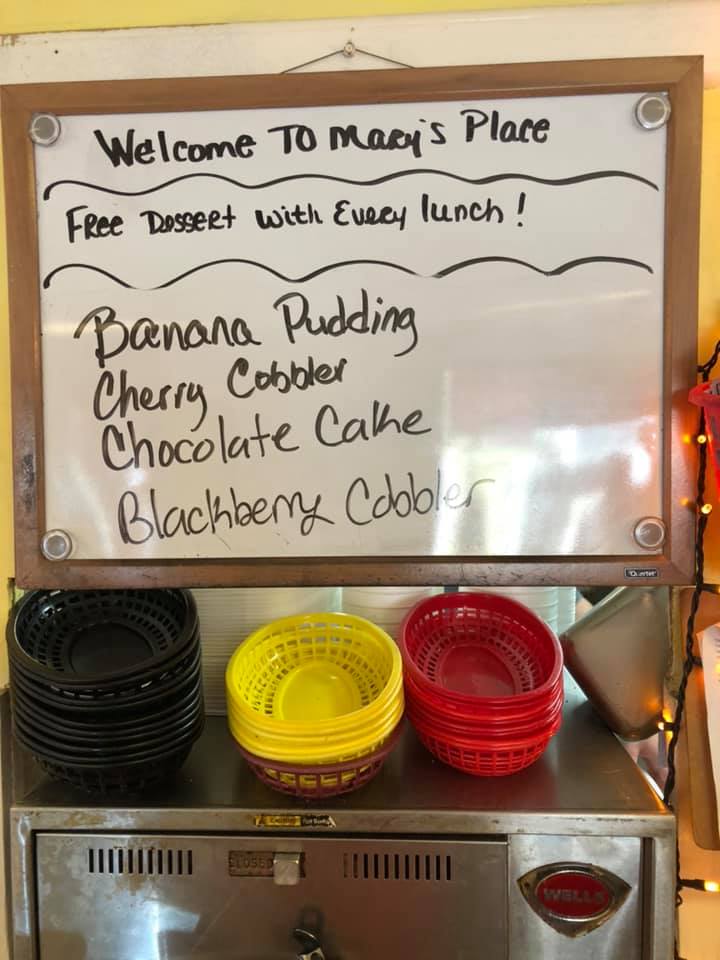 Welcome To Mary's Place
Free Dessert with Every lunch!
Banana Pudding
Cherry Cobbler
Chocolate Cake
Blackberry Cobbler
Quartet
CLOSED
WELLS